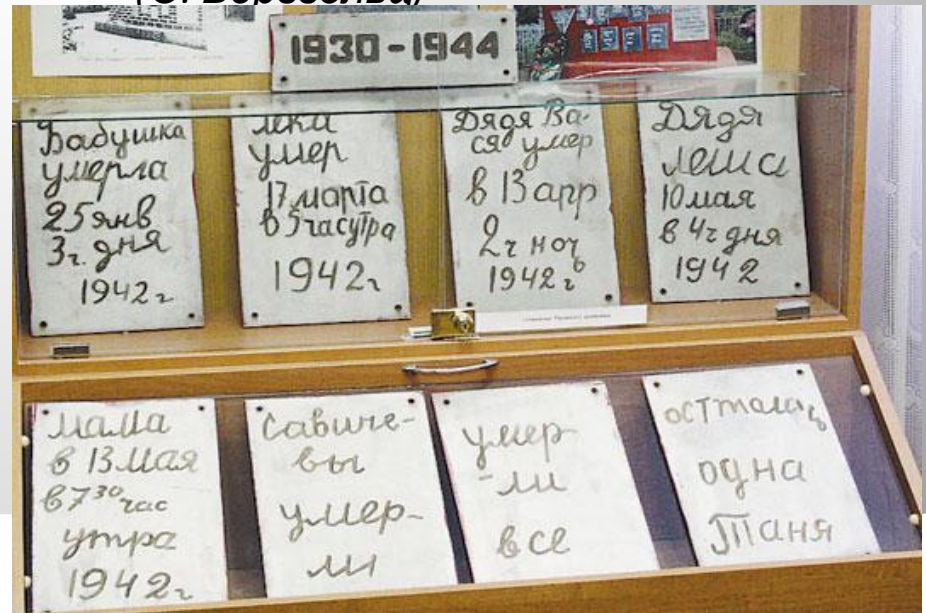 1930-1944
Бабушка
умерла
25 янв
3ч. дня
1942г
лека
умер
17 марта
в 5 часутра
1942г
Дядя Ва-
ся умер
в 13 апр
2ч ночь
1942г
Дядя
леша
10 мая
в 4ч дня
1942
мама
в 13 мая
в 7 30 час
утра
1942г
савиче-
вы
умер-
ли
умер-
-ли
все
остталась
одна
Таня